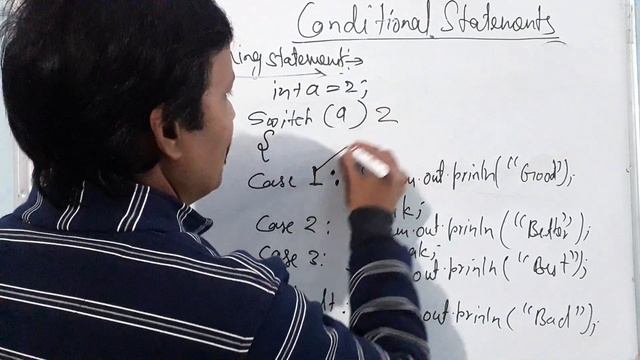 Conditional Statements
ing statement:→
int a = 2;
Switch (a) 2
{
Case 1 : m.out.prinln("Good");
ak;
Case 2 : m.out.prinln("Better");
eak;
Case 3 : out.prinln("Best");
lt: out.prinln("Bad");